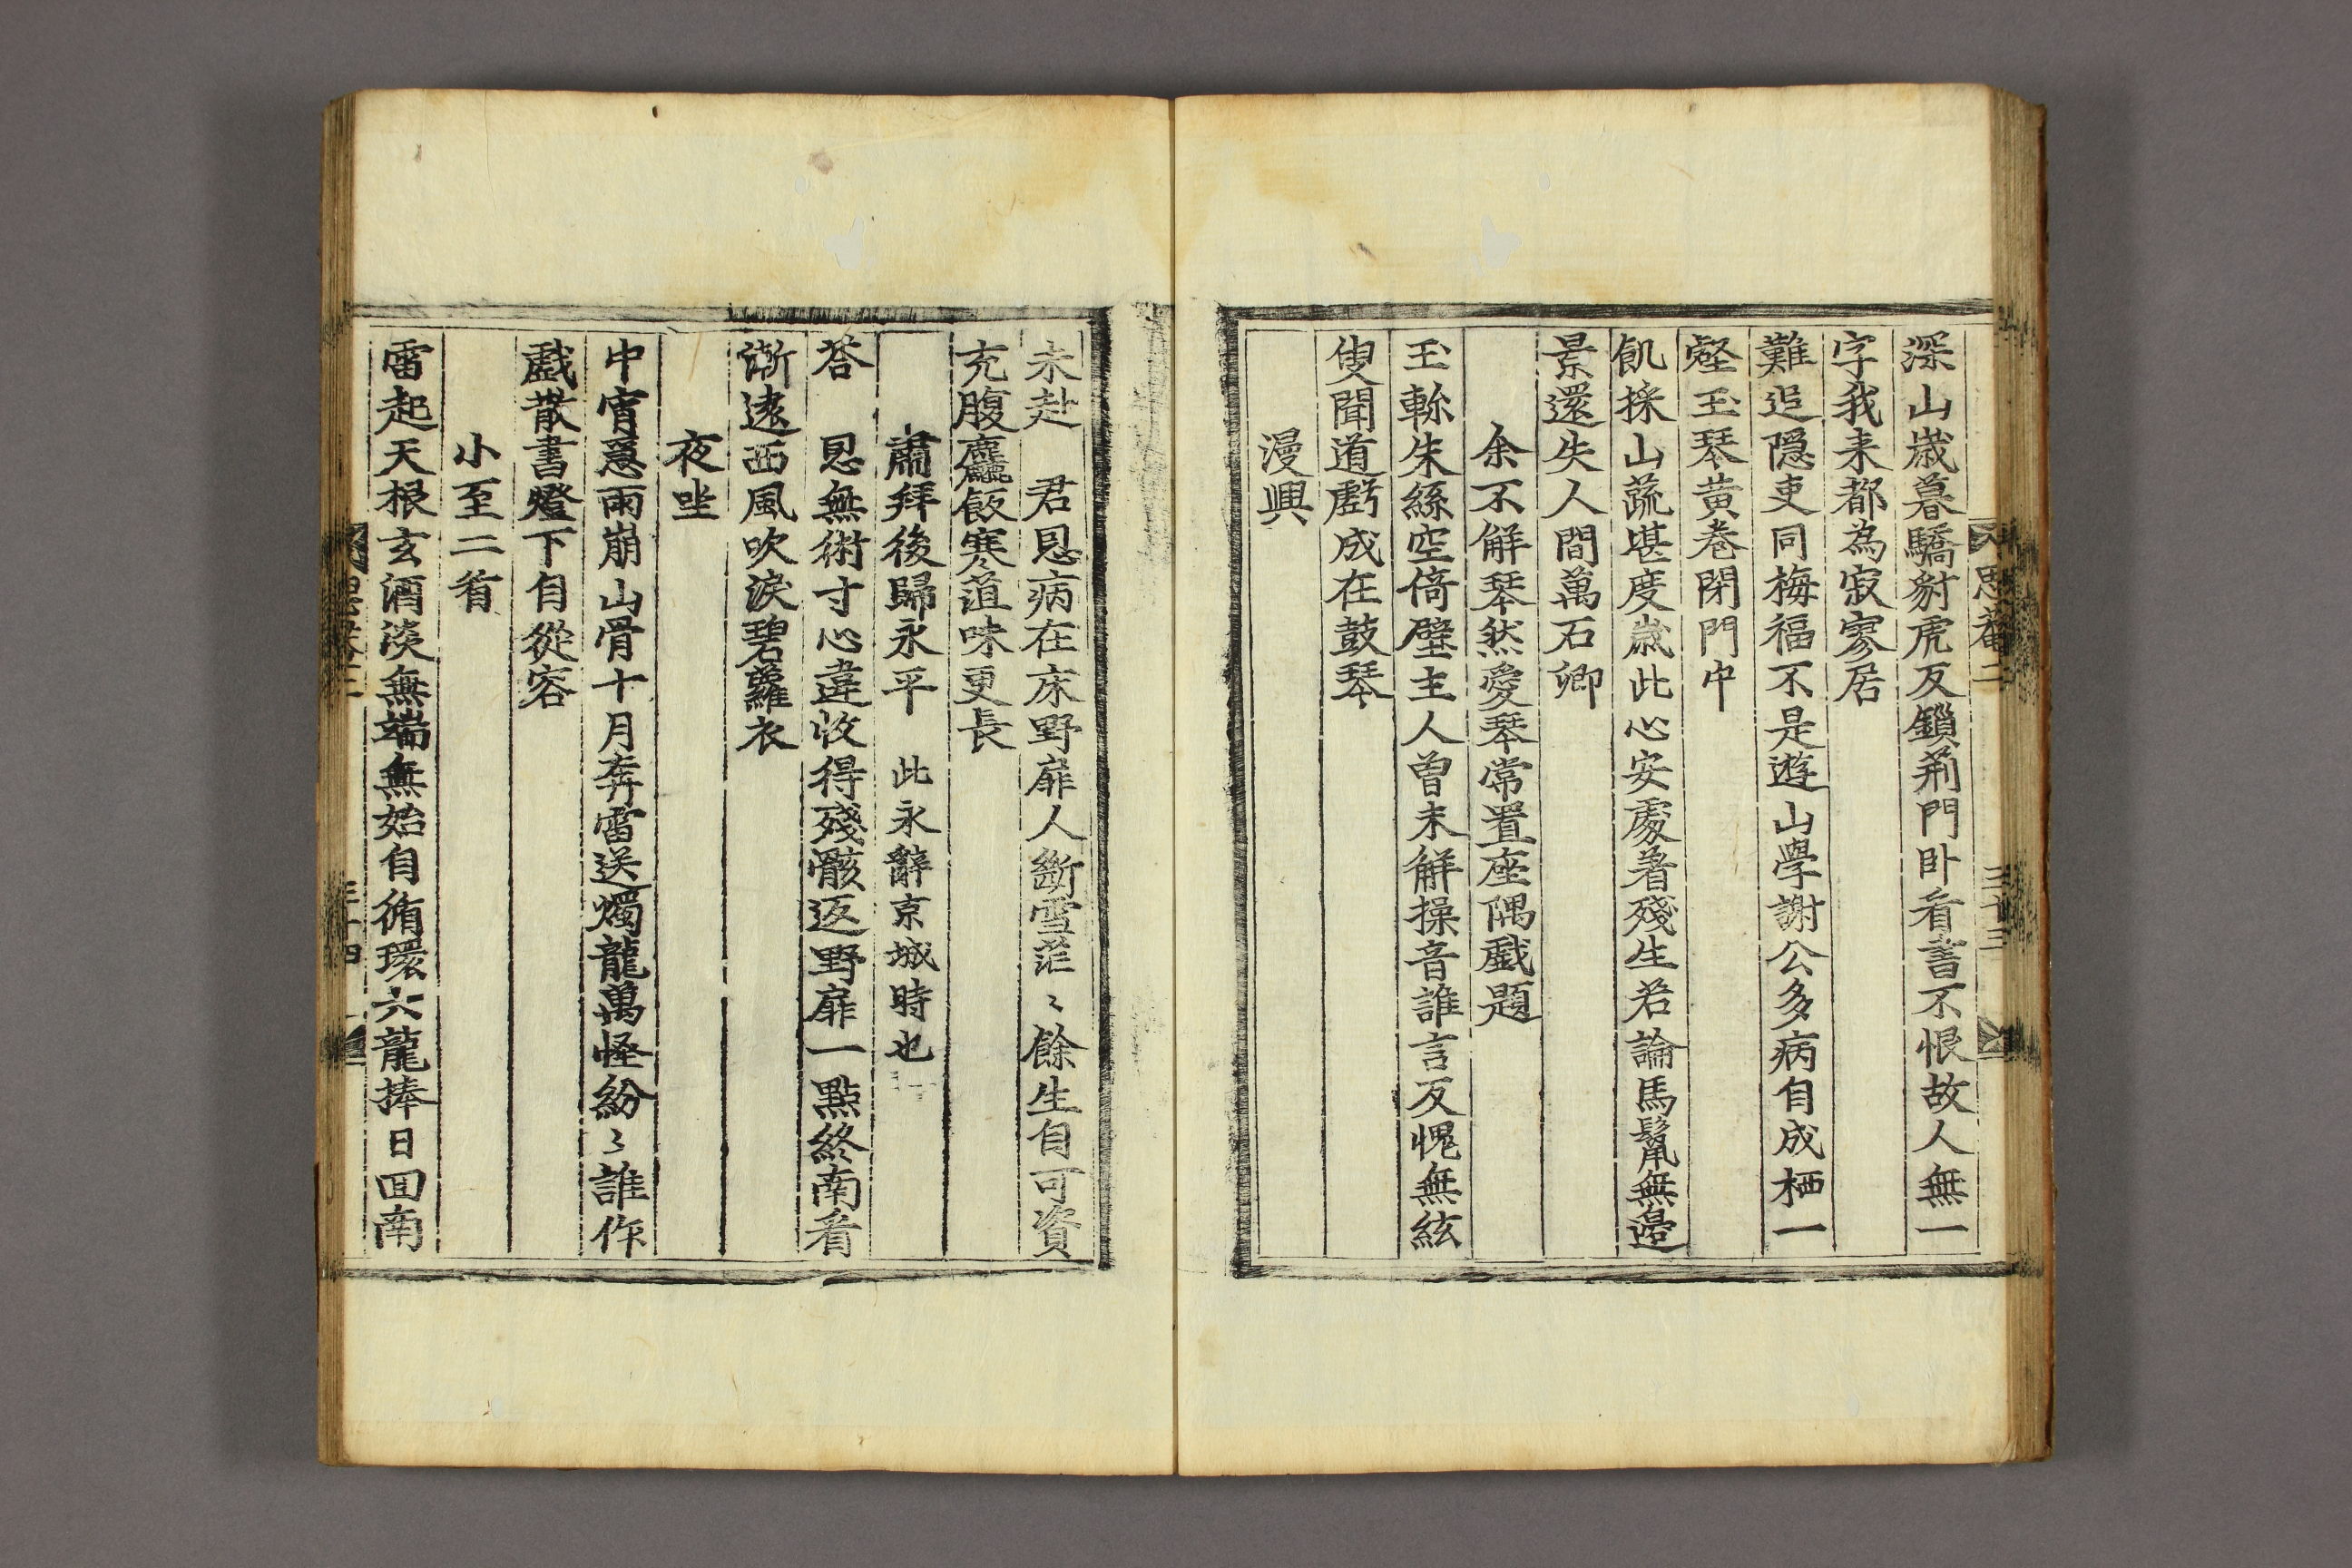 思菴二
三十三
深山歲暮驕豺虎反鎖荊門卧看書不恨故人無一
字我来都為寂寥居
難追隠吏同梅福不是遊山學謝公多病自成栖一
壑玉琴黄巻閉門中
飢採山蔬堪度歲此心安處着殘生若論馬鬛無邊
景還失人間萬石卿
余不解琴然愛琴常置座隅戱題
玉軫朱絲空倚壁主人曾未解操音誰言反愧無絃
叟聞道虧成在鼓琴
漫興
未赴　君恩病在床野扉人斷雪茫〻餘生自可資
充腹麤飯寒菹味更長
肅拜後歸永平　此永辭京城時也
荅　恩無術寸心違收得殘骸返野扉一點終南看
漸遠西風吹淚碧蘿衣
夜坐
中宵急雨崩山骨十月奔雷送燭龍萬怪紛〻誰作
戱散書燈下自從容
小至二首
雷起天根玄酒淡無端無始自循環六龍捧日回南
三十四